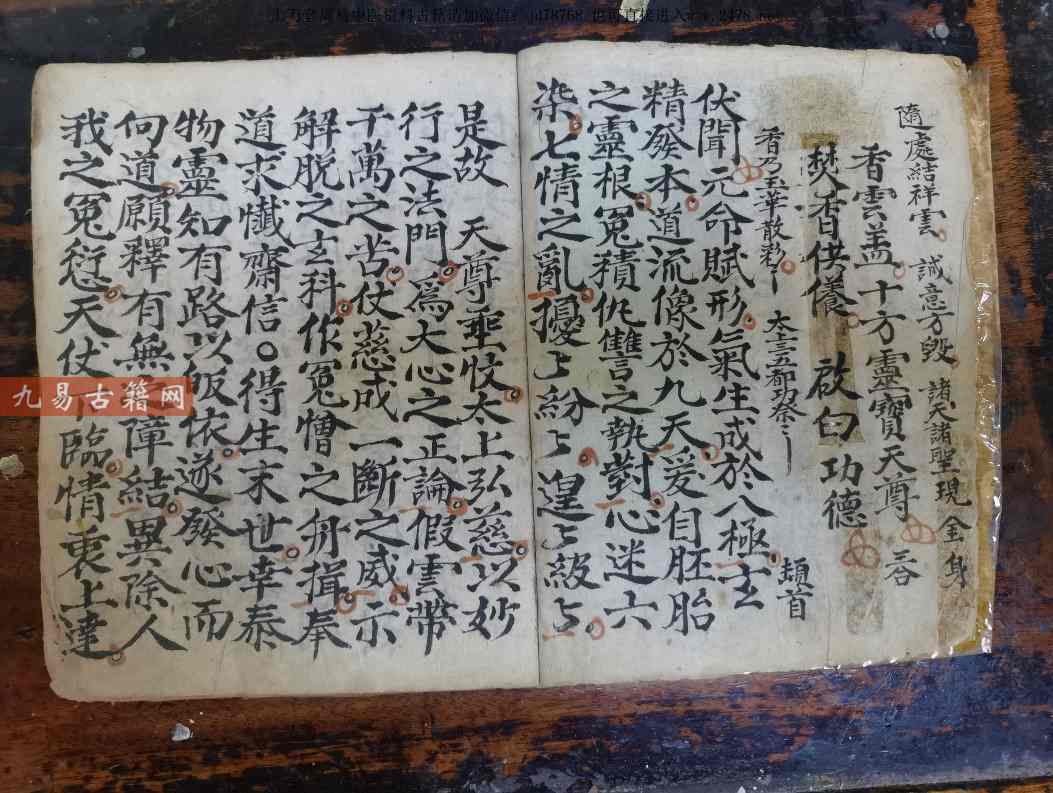 隨處結祥雲 誠意方毀 諸天諸聖現金身
香雲盖十方靈寶天尊
焚香供養 啟白功德
香乃玉華散彩 太三五都功
頫首
伏聞元命賦形氣生成於八極玄
精發本道流像於九天爰自胚胎
之靈根冤積仇讐之執對心迷六
染七情之亂擾〻紛〻遑〻級〻
是故 天尊垂憫太上弘慈以妙
行之法門爲大心之正論假雲帶
千萬之苦仗慈成一斷之威示
解脫之玄科作冤憎之舟揖奉
道求懺齋信〇得生末世幸泰
物靈知有路以皈依遂發心而
向道願釋有無障結異除人
我之冤愆天仗臨情衷上達
九易古籍网